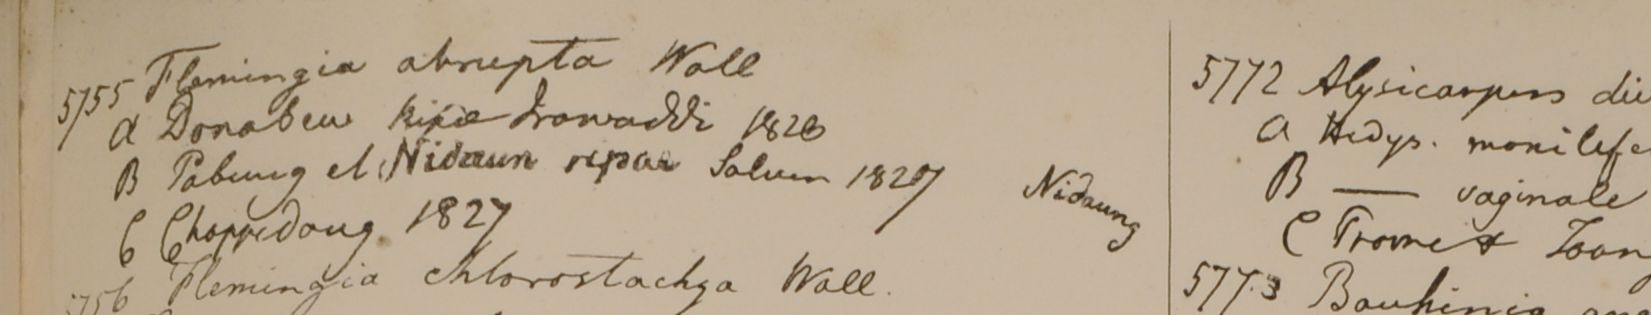 5755 Flemingia abrupta Wall
A Donabew ripæ Irawaddi 1826
B Pabung et Nidaun ripae Saluen 1827 Nidaung
C Choppedong 1827
5756 Flemingia chlorostachya Wall.
5772 Alysicarpus
A Hedys. monilife
B — vaginale
C Prome & Toong
5773 Bauhinia